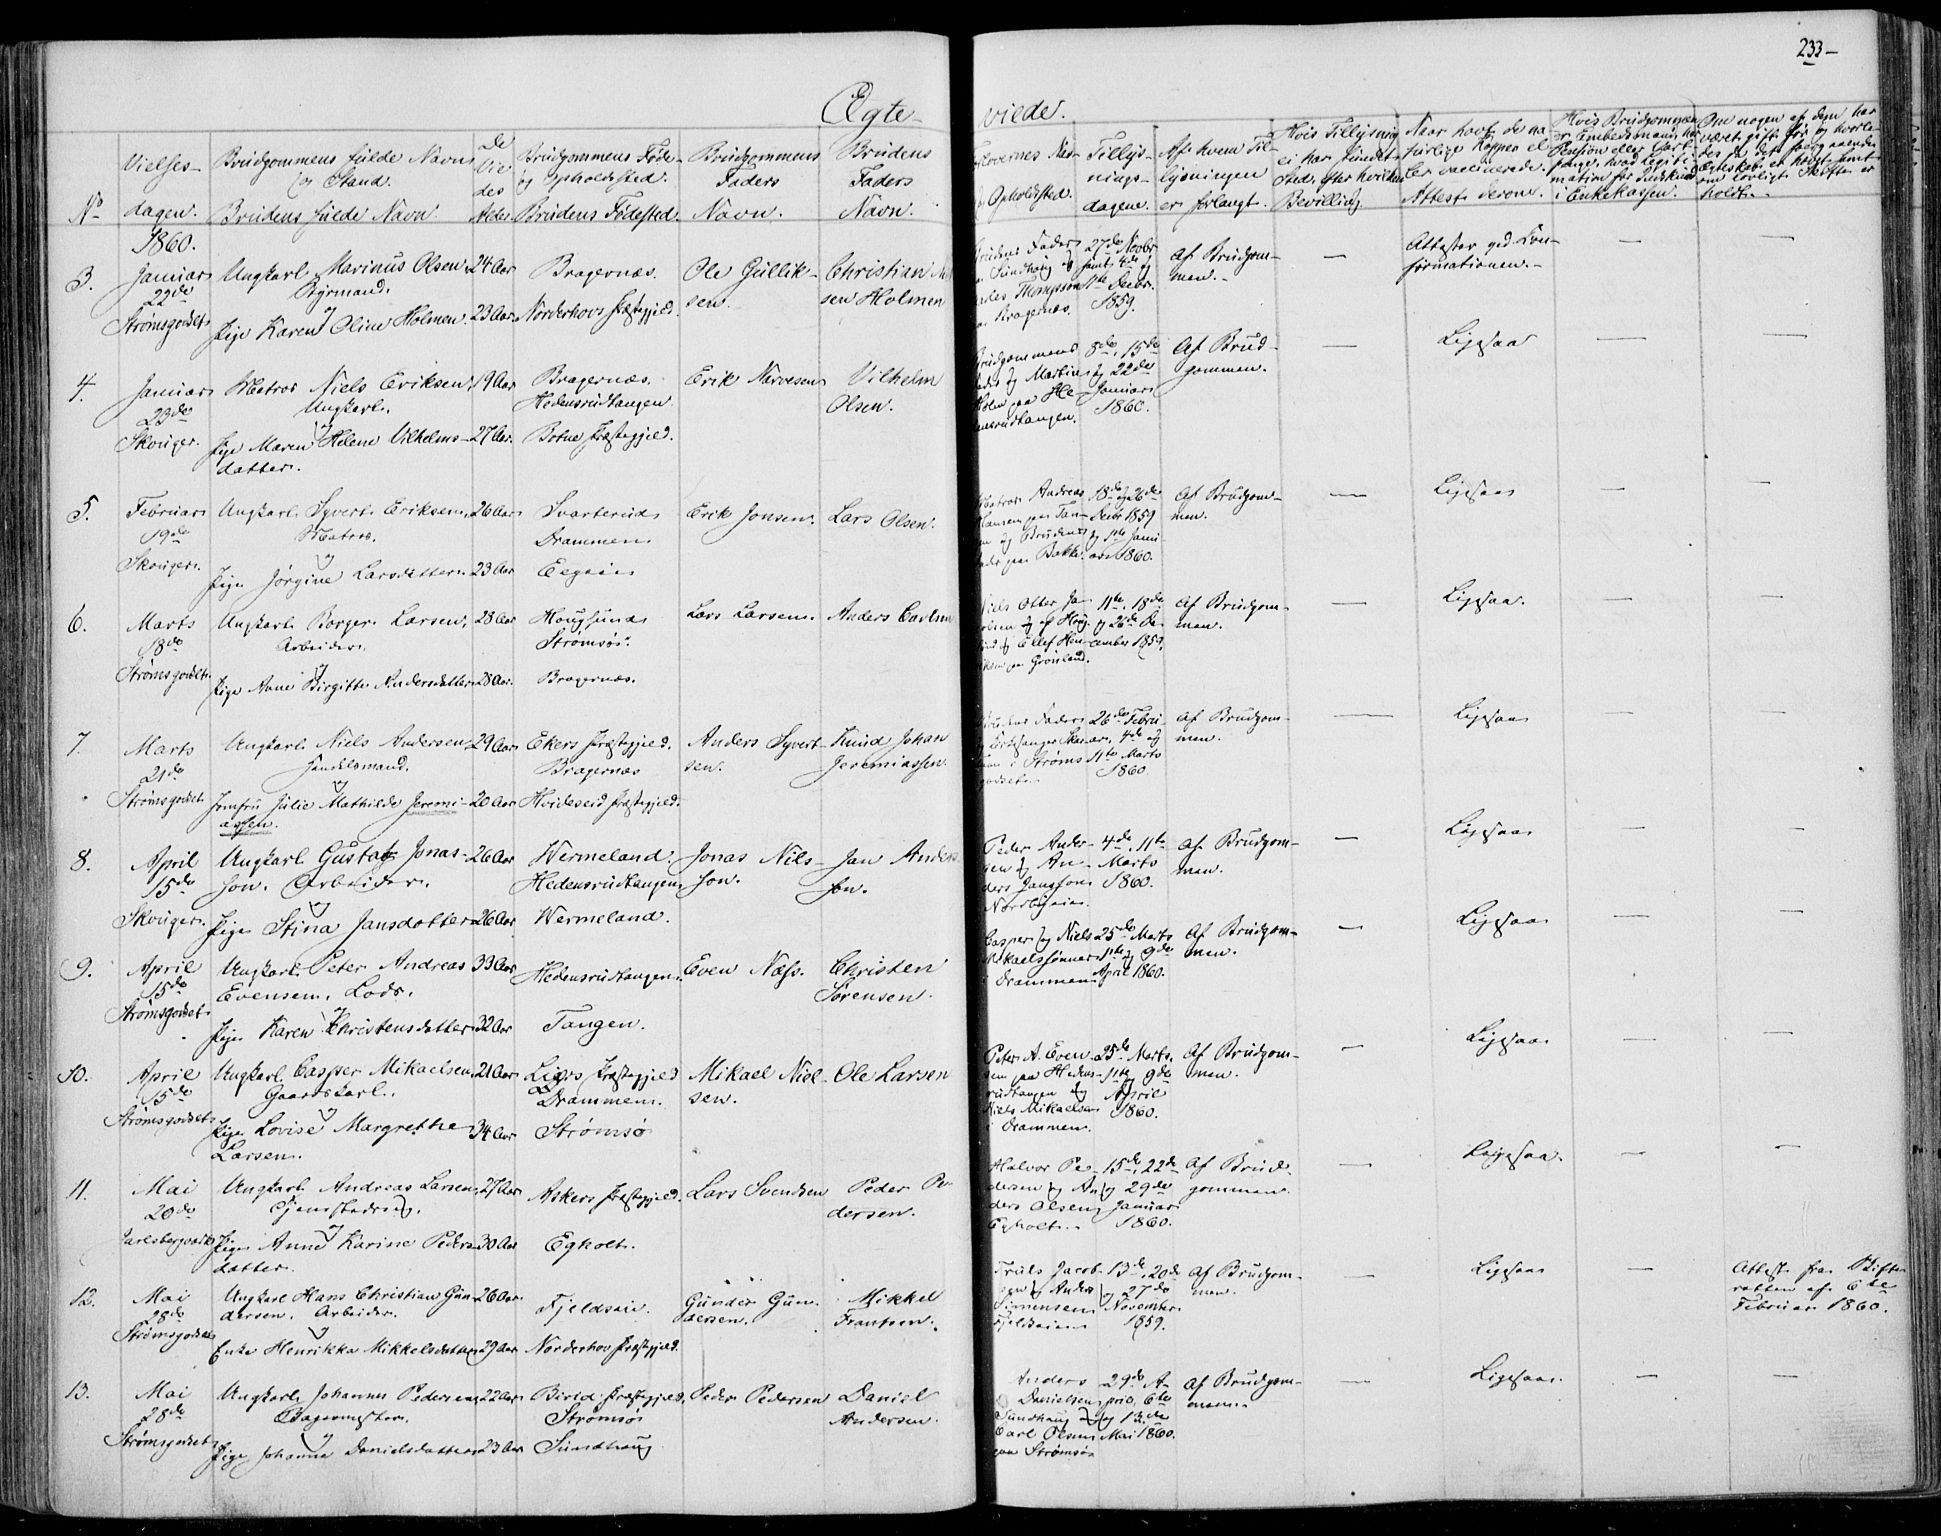 233
Ægte-
viede.
No
Vielses-
dagen.
Brudgommens fulde Navn
og Stand.
Brudens fulde Navn.
De
Vie
des
Alder
Brudgommens Føde-
og Opholdsted.
Brudens Fødested.
Brudgommens
Faders
Navn.
Brudens
Faders
Navn.
Opholdsted.
Tillys-
nings-
dagene.
Af hvem Til-
lysningen
er forlangt.
Hvis Tillysning
ei har fundet
Sted, efter hvilken
Bevilling.
Naar havt de na-
turlige Kopper el-
ler vaccinerede.
Attest derom.
1860.
3.
Januar
22de
Strømsgodset
Ungkarl Marinus Olsen
Byemand.
og
Pige Karen Oline Holmen.
24 Aar
23 Aar
Bragernæs.
Norderhovs Præstegjeld.
Ole Gullik-
sen.
Christian
sen Holmen
Brudens Fader
Sundhaug og
Thompson
Bragernæs.
27de Novbr
samt 4de og
11te Decbr.
1859.
Af Brudgom-
men.
—
Attester ved Con-
firmationen.
—
—
4.
Januar
23de
Skouger.
Matros Niels Eriksen
Ungkarl.
og
Pige Maren Helene Vilhelms-
datter.
19 Aar
27 Aar.
Bragernæs.
Hedensrudtangen.
Botne Præstegjeld.
Erik Narvesen
Vilhelm
Olsen.
Brudgommens
Fader og Martin
Holm paa He-
densrudtangen.
8de, 15de
og 22de
Januar
1860.
Af Brud-
gommen.
—
Ligesaa
—
—
5.
Februar
19de
Skouger.
Ungkarl Syvert Eriksen,
Matros.
og
Pige Jørgine Larsdatter.
26 Aar
23 Aar
Svarterud
Drammen
Erik Jonsen.
Lars Olsen.
Matros Andreas
Hansen paa Tan-
gen og Brudens
Fader paa Bakke.
18de og 26de
Decbr 1859
og 1ste Janu-
ar 1860.
Af Brudgom-
men.
—
Ligesaa
—
—
6.
Marts
18de
Strømsgodset.
Ungkarl Borger Larsen,
Arbeider.
og
Pige Anne Birgitte Andersdatter
28 Aar
28 Aar.
Hougsund
Strømsø.
Bragernæs.
Lars Larsen.
Anders Carlsen
Niels Otter Ja-
cobsen og af Houg-
sund og Ellef Hen-
riksen paa Grønland.
11te, 18de
og 26de De-
cember 1859.
Af Brudgom-
men.
—
Ligesaa.
—
—
7.
Marts
21de
Strømsgodset
Ungkarl Niels Andersen,
Handelsmand.
og
Jomfru Julie Mathilde Jeremi-
assen.
29 Aar
20 Aar
Ekers Præstegjeld.
Bragernæs
Hvideseid Præstegjeld.
Anders Syvert-
sen.
Knud Johan
Jeremiassen.
Brudens Fader
og Kirkesanger
i Strøms-
godset.
26de Febru-
ar, 4de og
11te Marts
1860
Af Brudgom-
men.
—
Ligesaa
—
—
8.
April
15de
Skouger.
Ungkarl Gustaf Jonas-
son. Arbeider.
og
Pige Stina Jansdotter
26 Aar
26 Aar
Wermeland.
Hedensrudtangen
Wermeland.
Jonas Nils-
son.
Jan Anders-
son.
Peder Ander-
sen og An-
ders Jansson
Nordbyeie.
4de, 11te
Marts
1860.
Af Brudgom-
men.
—
Ligesaa
—
—
9.
April
15de
Strømsgodset
Ungkarl Peter Andreas
Evensen. Lods.
og
Pige Karen Christensdatter
33 Aar
32 Aar
Hedensrudtangen.
Tangen.
Even Næss.
Christen
Sørensen.
Casper og Niels
Mikaelssønner
i Drammen
25de Marts
11te og 9de
April 1860.
Af Brudgom-
men.
—
Ligesaa
—
—
10.
April
15de
Strømsgodset
Ungkarl Casper Mikaelsen
Gaardskarl.
og
Pige Lovise Margrethe
Larsen.
21 Aar
34 Aar
Liers Præstegjeld
Drammen.
Strømsø
Mikael Niel-
sen.
Ole Larsen
Peter A. Even-
sen paa Hedens-
rudtangen og
Niels Mikaelsen
i Drammen.
25de Marts.
11te og 9de
April
1860.
Af Brudgom-
men.
—
Ligesaa
—
—
11.
Mai
20de
Ungkarl Andreas Larsen,
og
Pige Anne Karine Peders-
datter.
27 Aar
30 Aar
Askers Præstegjeld.
Egholt.
Lars Svendsen
Peder Pe-
dersen.
Halvor Pe-
dersen og An-
ders Olsen
Egholt.
15de, 22de
og 29de
Januar
1860.
Af Brud-
gommen.
—
Ligesaa.
—
—
12.
Mai
28de
Strømsgodset
Ungkarl Hans Christian Gun-
dersen. Arbeider.
og
Enke Henrikka Mikkelsdatter
26 Aar
29 Aar
Fjeldseie.
Norderhov Præstegjeld.
Gunder Gun-
dersen.
Mikkel
Frantsen.
Truls Jacob-
sen og Anders
Simensen
Fjeldseie
13de, 20de
og 27de
November
1859.
Af Brudgom-
men.
—
Ligesaa
—
Attest fra Skifte-
retten af 6te
Februar 1860.
13.
Mai
28de
Strømsgodset
Ungkarl Johannes Pedersen
Bagermester.
og
Pige Johanne Danielsdatter
22 Aar
23 Aar
Birid Præstegjeld,
Strømsø
Sundhaug
Peder Pedersen
Daniel
Andersen.
Anders
Danielsen
Sundhaug og
Carl Olsen
paa Strømsø
29de A-
pril, 6te
og 13de
Mai 1860.
Af Brudgom-
men.
—
Ligesaa.
—
—